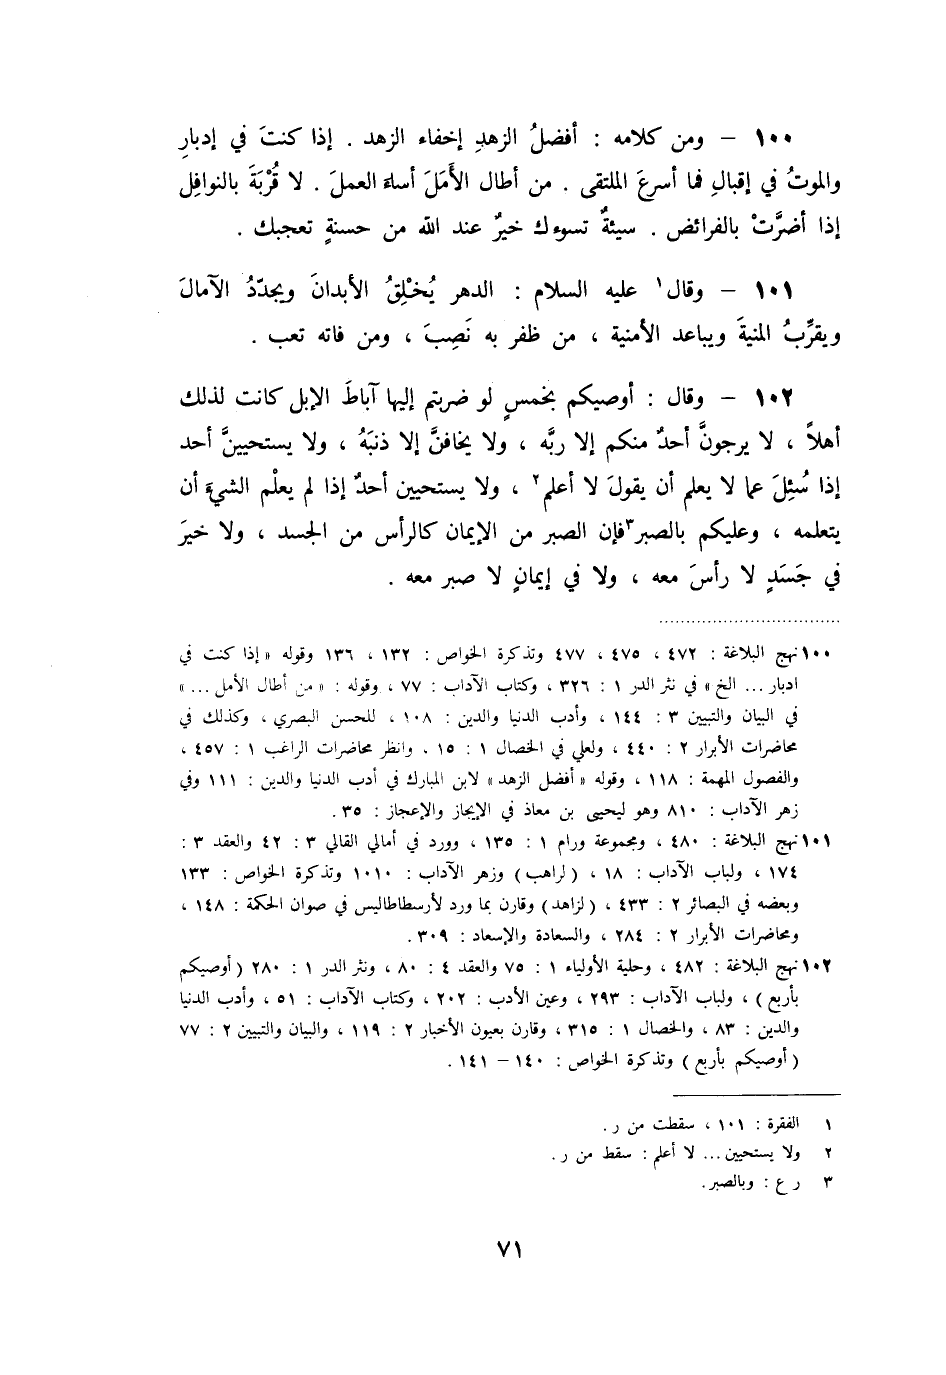 ١٠٠ – ومن كلامه : أفضلُ الزهدِ إخفاء الزهد . إذا كنتَ في إدبارِ
والموتُ في إقبالِ فما أسرعَ الملتقى . من أطال الأَمَلَ أساءَ العملَ . لا قُرْبَةَ بالنوافِل
إذا أضرَّتْ بالفرائض . سيئةٌ تسوءك خيرٌ عند الله من حسنةٍ تعجبك .
١٠١ – وقال١ عليه السلام : الدهر يُخْلِقُ الأبدانَ ويجدّدُ الآمالَ
ويقرِّبُ المنيةَ ويباعد الأمنية ، من ظفر به نَصِبَ ، ومن فاته تعب .
١٠٢ – وقال : أوصيكم بخمسٍ لو ضربتم إليها آباطَ الإبل كانت لذلك
أهلاً ، لا يرجونَّ أحدٌ منكم إلا ربَّه ، ولا يخافنَّ إلا ذنبَهُ ، ولا يستحيينَّ أحد
إذا سُئِلَ عما لا يعلم أن يقولَ لا أعلم٢ ، ولا يستحيين أحدٌ إذا لم يعلْم الشيءَ أن
يتعلمه ، وعليكم بالصبر٣ فإن الصبر من الإيمان كالرأس من الجسد ، ولا خيرَ
في جَسَدٍ لا رأسَ معه ، ولا في إيمانٍ لا صبر معه .
١٠٠ نهج البلاغة : ٤٧٢ ، ٤٧٥ ، ٤٧٧ وتذكرة الخواص : ١٣٢ ، ١٣٦ وقوله « إذا كنت في
ادبار ... الخ » في نثر الدر ١ : ٣٢٦ ، وكتاب الآداب : ٧٧ ، وقوله : « من أطال الأمل ... »
في البيان والتبيين ٣ : ١٤٤ ، وأدب الدنيا والدين : ١٠٨ ، للحسن البصري ، وكذلك في
محاضرات الأبرار ٢ : ٤٤٠ ، ولعلي في الخصال ١ : ١٥ . وانظر محاضرات الراغب ١ : ٤٥٧ ،
والفصول المهمة : ١١٨ ، وقوله « أفضل الزهد » لابن المبارك في أدب الدنيا والدين : ١١١ وفي
زهر الآداب : ٨١٠ وهو ليحيى بن معاذ في الإيجاز والإعجاز : ٣٥ .
١٠١ نهج البلاغة : ٤٨٠ ، ومجموعة ورام ١ : ١٣٥ ، وورد في أمالي القالي ٣ : ٤٢ والعقد ٣ :
١٧٤ ، ولباب الآداب : ١٨ ، ( لراهب ) وزهر الآداب : ١٠١٠ وتذكرة الخواص : ١٣٣
وبعضه في البصائر ٢ : ٤٣٣ ، ( لزاهد ) وقارن بما ورد لأرسطاطاليس في صوان الحكمة : ١٤٨ ،
ومحاضرات الأبرار ٢ : ٢٨٤ ، والسعادة والإسعاد : ٣٠٩ .
١٠٢ نهج البلاغة : ٤٨٢ ، وحلية الأولياء ١ : ٧٥ والعقد ٤ : ٨٠ ، ونثر الدر ١ : ٢٨٠ ( أوصيكم
بأربع ) ، ولباب الآداب : ٢٩٣ ، وعين الأدب : ٢٠٢ ، وكتاب الآداب : ٥١ ، وأدب الدنيا
والدين : ٨٣ ، والخصال ١ : ٣١٥ ، وقارن بعيون الأخبار ٢ : ١١٩ ، والبيان والتبيين ٢ : ٧٧
( أوصيكم بأربع ) وتذكرة الخواص : ١٤٠ – ١٤١ .
١ الفقرة : ١٠١ ، سقطت من ر .
٢ ولا يستحيين ... لا أعلم : سقط من ر .
٣ ر ع : وبالصبر .
٧١